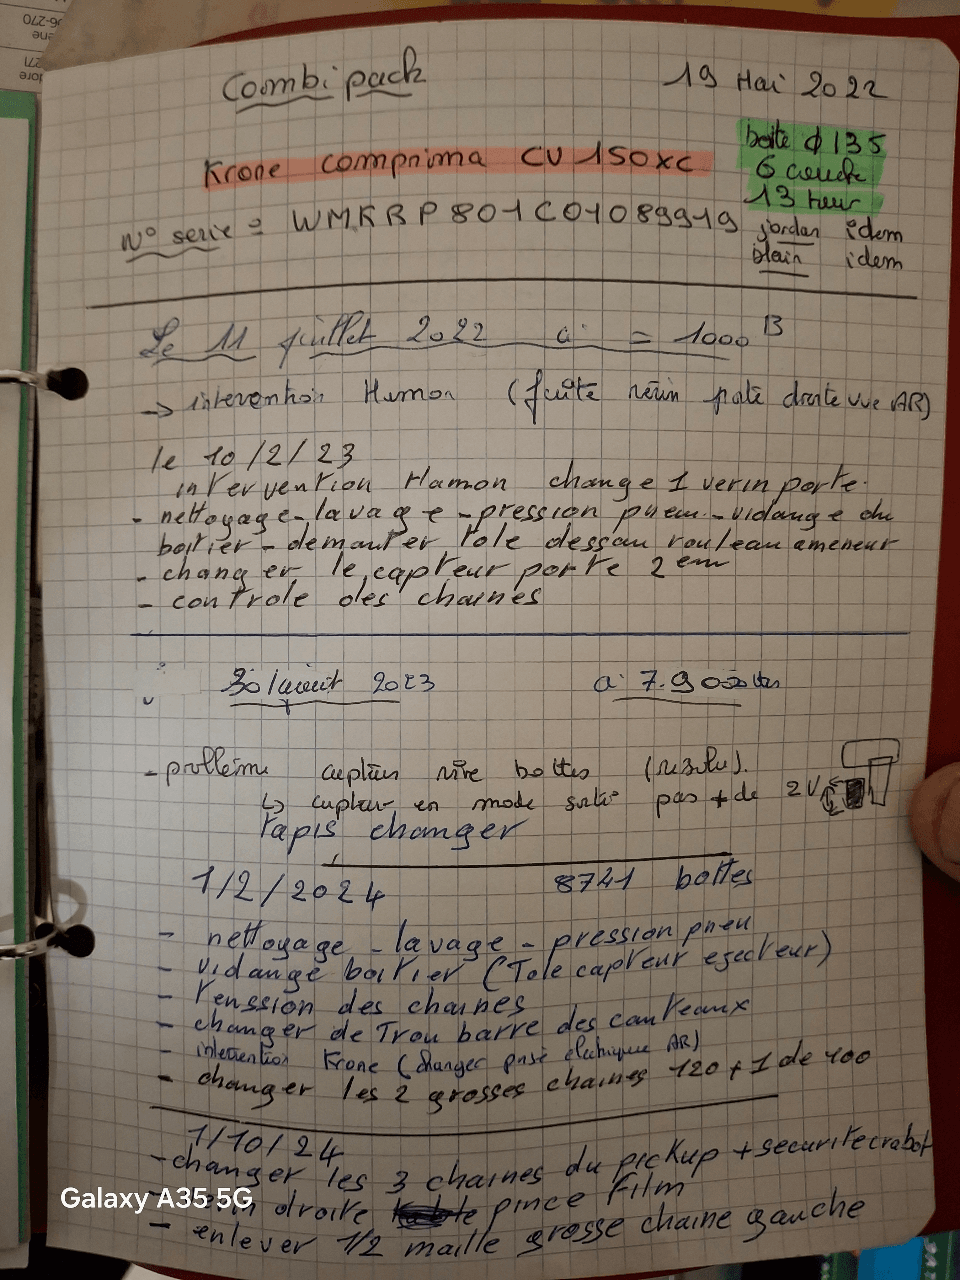 Combi pack 19 Mai 2022
Krone comprima CV 150 XC
botte ϕ 135
6 couche
13 heur
N° serie = WMKRP801C01089919
jordan idem
blain idem
Le 11 juillet 2022 a = 1000 B
→ intervention Hamon (fuite vérin porte droite vue AR)
le 10/2/23
intervention Hamon change 1 verin porte
- nettoyage - lavage - pression pneu - vidange du
boitier - demonter tole dessou rouleau ameneur
- changer le capteur porte 2 em
- controle des chaines
30/août 2023 a 7.900
- problème capteur bottes (résolu).
↳ capteur en mode pas + de 2V
Tapis changer
1/2/2024 8741 bottes
- nettoyage - lavage - pression pneu
- vidange boitier (Tole capteur ejecteur)
- Tenssion des chaines
- changer de Trou barre des couteaux
- intervention Krone (changer prise électrique AR)
- changer les 2 grosses chaines 120 + 1 de 100
1/10/24
- changer les 3 chaines du pickup + securite crabot
- droire pince film
- enlever 1/2 maille grosse chaine gauche
Galaxy A35 5G